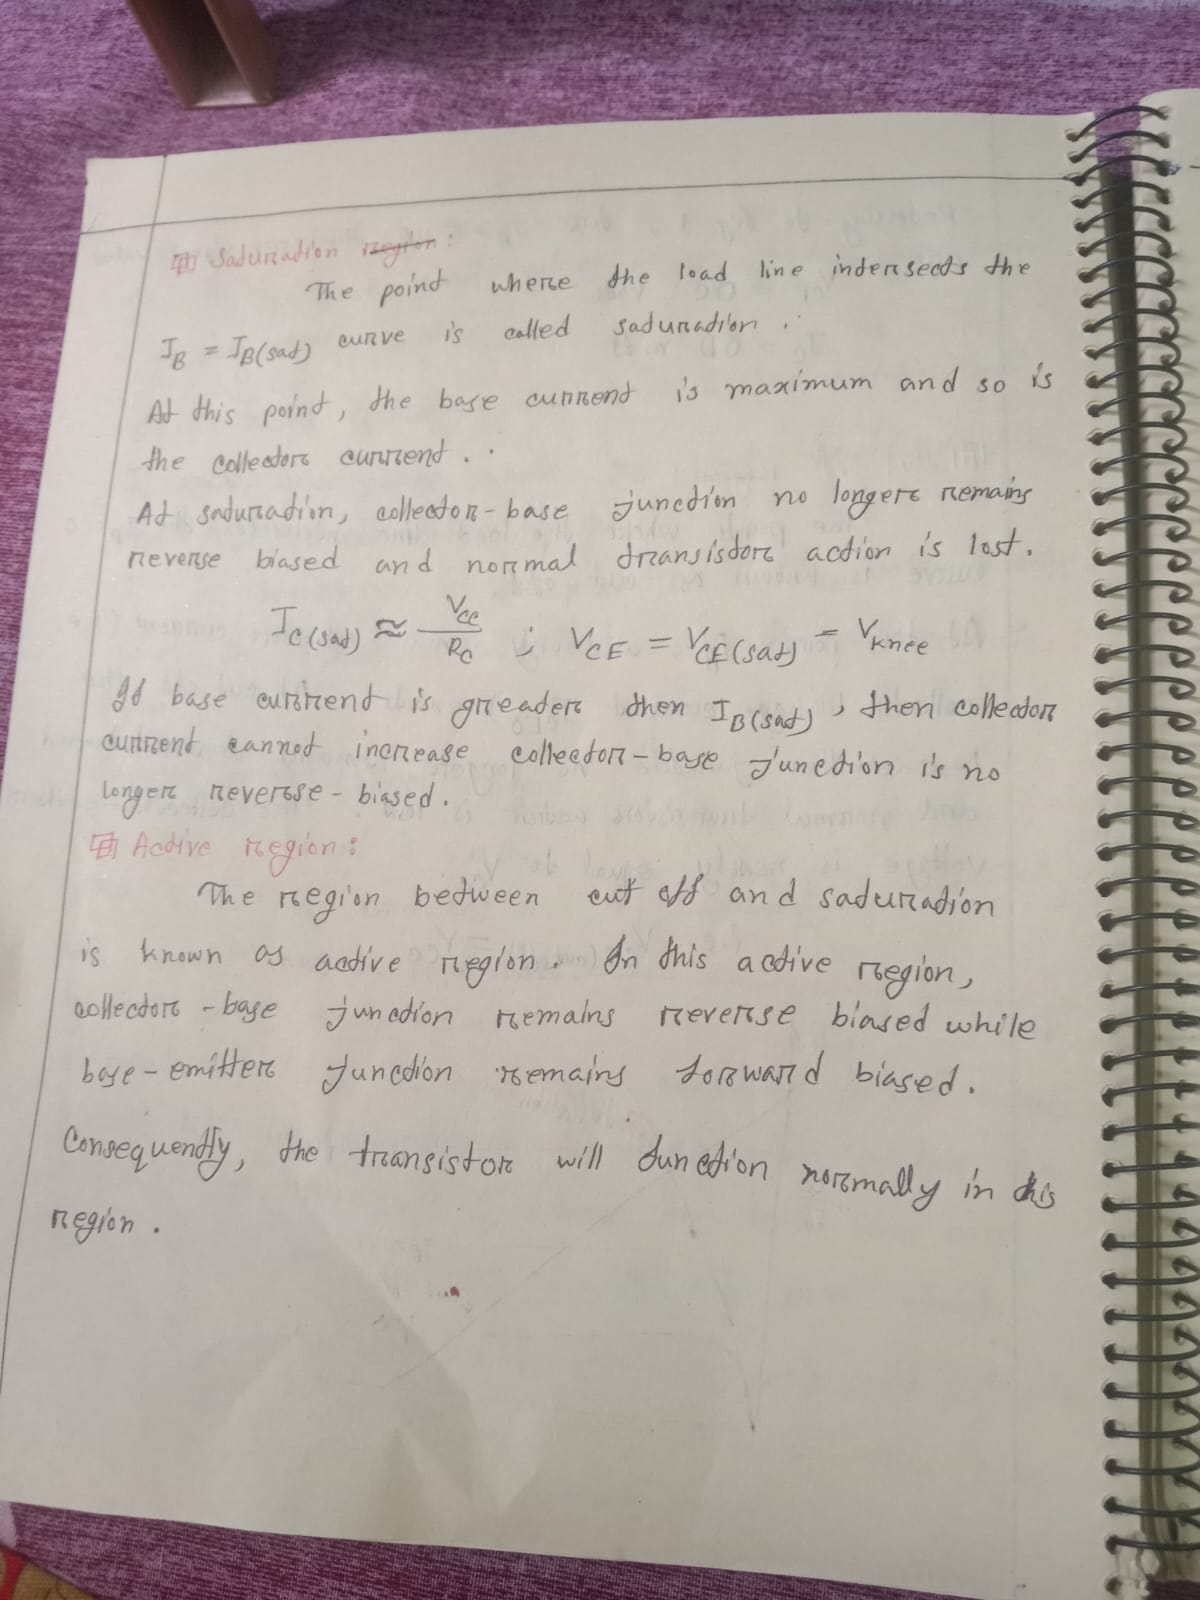 Saturation region:
The point where the load line intersects the
I_B = I_B(sat) curve is called saturation.
At this point, the base current is maximum and so is
the collector current.
At saturation, collector-base junction no longer remains
reverse biased and normal transistor action is lost.
I_C(sat) ≈ V_CC / R_C ; V_CE = V_CE(sat) = V_knee
If base current is greater then I_B(sat), then collector
current cannot increase collector-base junction is no
longer reverse-biased.
Active region:
The region between cut off and saturation
is known as active region. In this active region,
collector-base junction remains reverse biased while
base-emitter junction remains forward biased.
Consequently, the transistor will function normally in this
region.